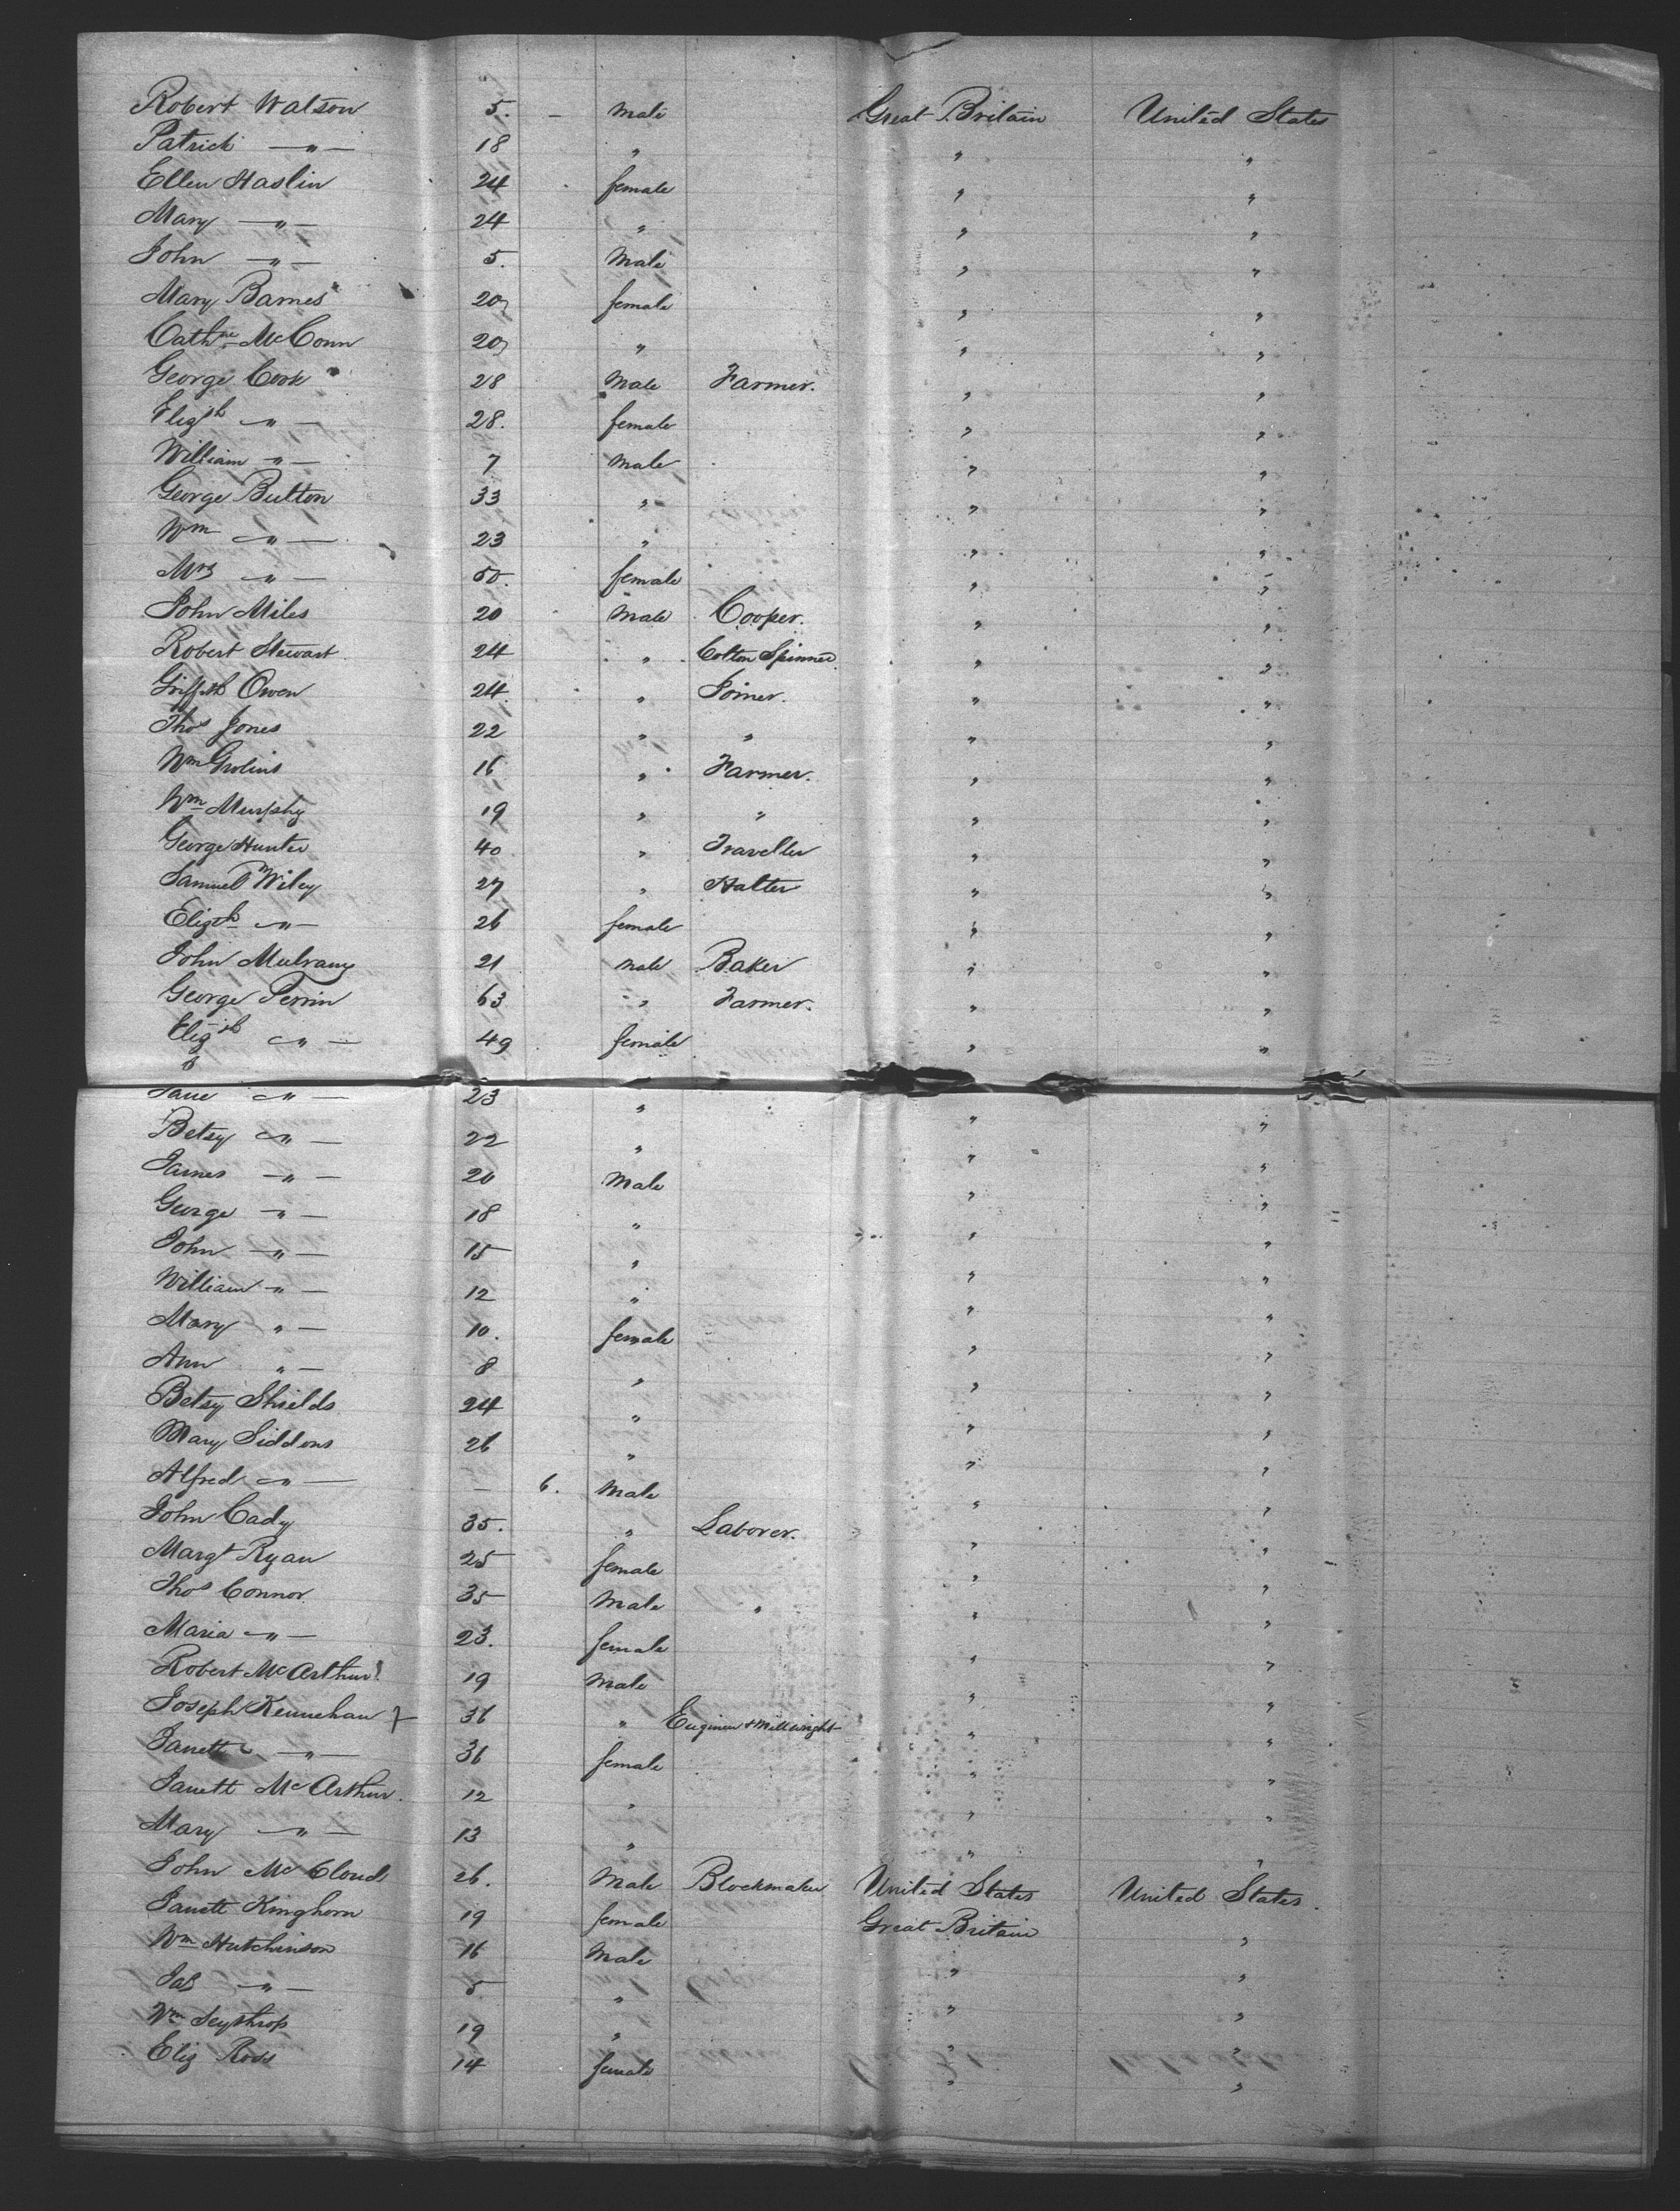 Robert Watson 5. – Male Great Britain United States
Patrick —„— 18 „ „ „
Ellen Haslin 24 female „ „
Mary —„— 24 „ „ „
John —„— 5. Male „ „
Mary Barnes 20 female „ „
Cathne McConn 20 „ „ „
George Cook 28 Male Farmer. „ „
Elizth „— 28. female „ „
William „— 7 Male „ „
George Bulton 33 „ „ „
Wm „— 23 „ „ „
Mrs „— 50. female „ „
John Miles 20 Male Cooper. „ „
Robert Stewart 24 „ Cotton Spinner „ „
Griffith Owen 24. „ Joiner. „ „
Thos Jones 22 „ „ „ „
Wm 16 „ Farmer. „ „
Wm Murphy 19 „ „ „ „
George Hunter 40 „ Traveller „ „
Samuel Wiley 27 „ Hatter „ „
Elizth „— 26 female „ „
John Mulvany 21 Male Baker „ „
George Perrin 63 „ Farmer. „ „
Elizth „— 49 female „ „
Jane „— 23 „ „ „
Betsy „— 22 „ „ „
James —„— 20 Male „ „
George —„— 18 „ „ „
John —„— 15 „ „ „
William —„— 12 „ „ „
Mary „— 10. female „ „
Ann „— 8 „ „ „
Betsy Shields 24 „ „ „
Mary Siddons 26 „ „ „
Alfred „— – 6. Male „ „
John Cady 35. „ Laborer. „ „
Margt Ryan 25 female „ „
Thos Connor 35 Male „ „ „
Maria —„— 23. female „ „
Robert McArthur 19 Male „ „
Joseph Kennehan 36 „ Engineer & Millwright „ „
Janett —„— 36 female „ „
Janett McArthur. 12 „ „ „
Mary —„— 13 „ „ „
John McCloud 26. Male Blockmaker United States United States.
Janett Kinghorn 19 female Great Britain „
Wm Hutchinson 16 Male „ „
Jas —„— 5. „ „ „
Wm Seythrop 19 „ „ „
Eliz Ross 14 female „ „